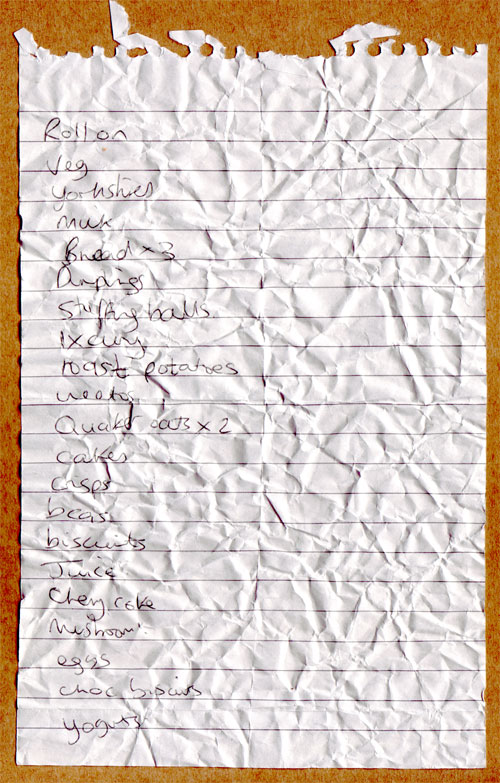 Roll on
Veg
Yorkshires
Milk
Bread x 3
Dumplings
Stuffing balls
1x curry
roast potatoes
weetos
Quake oats x 2
cakes
crisps
beas
biscuits
Juice
Chery cake
Mushroom
eggs
choc biscuits
yoguts